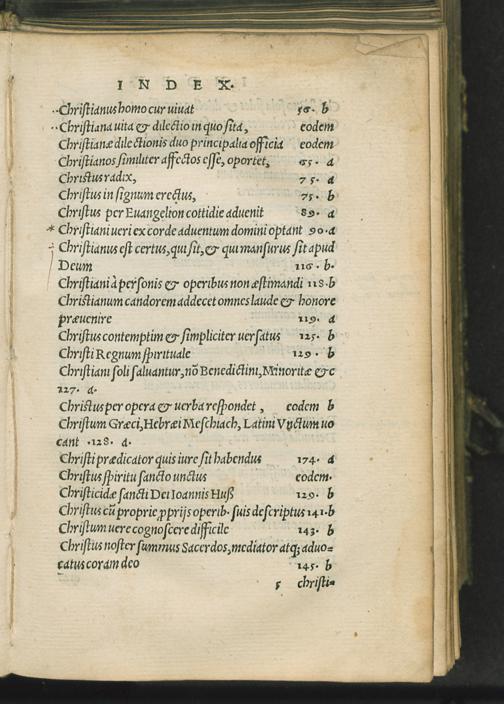 INDEX.
Christianus homo cur uiuat 56. b
Christiana uita & dilectio in quo sita, eodem
Christianæ dilectionis duo principalia officia eodem
Christianos similiter affectos esse, oportet, 65. a
Christus radix, 75. a
Christus in signum erectus, 75. b
Christus per Euangelion cottidie aduenit 89. a
* Christiani ueri ex corde aduentum domini optant 90.a
Christianus est certus, qui sit, & qui mansurus sit apud
Deum 116. b.
Christiani à personis & operibus non æstimandi 118.b
Christianum candorem addecet omnes laude & honore
præuenire 119. a
Christus contemptim & simpliciter uersatus 125. b
Christi Regnum spirituale 129. b
Christiani soli saluantur, nō Benedictini, Minoritæ &c
127. a.
Christus per opera & uerba respondet, eodem b
Christum Græci, Hebræi Meschiach, Latini Vnctum uo
cant .128. a.
Christi prædicator quis iure sit habendus 174. a
Christus spiritu sancto unctus eodem.
Christicidæ sancti Dei Ioannis Huß 129. b
Christus cū proprie ꝓprijs operib. suis descriptus 141.b
Christum uere cognoscere difficile 143. b
Christus noster summus Sacerdos, mediator atq; aduo=
catus coram deo 145. b
s christi=